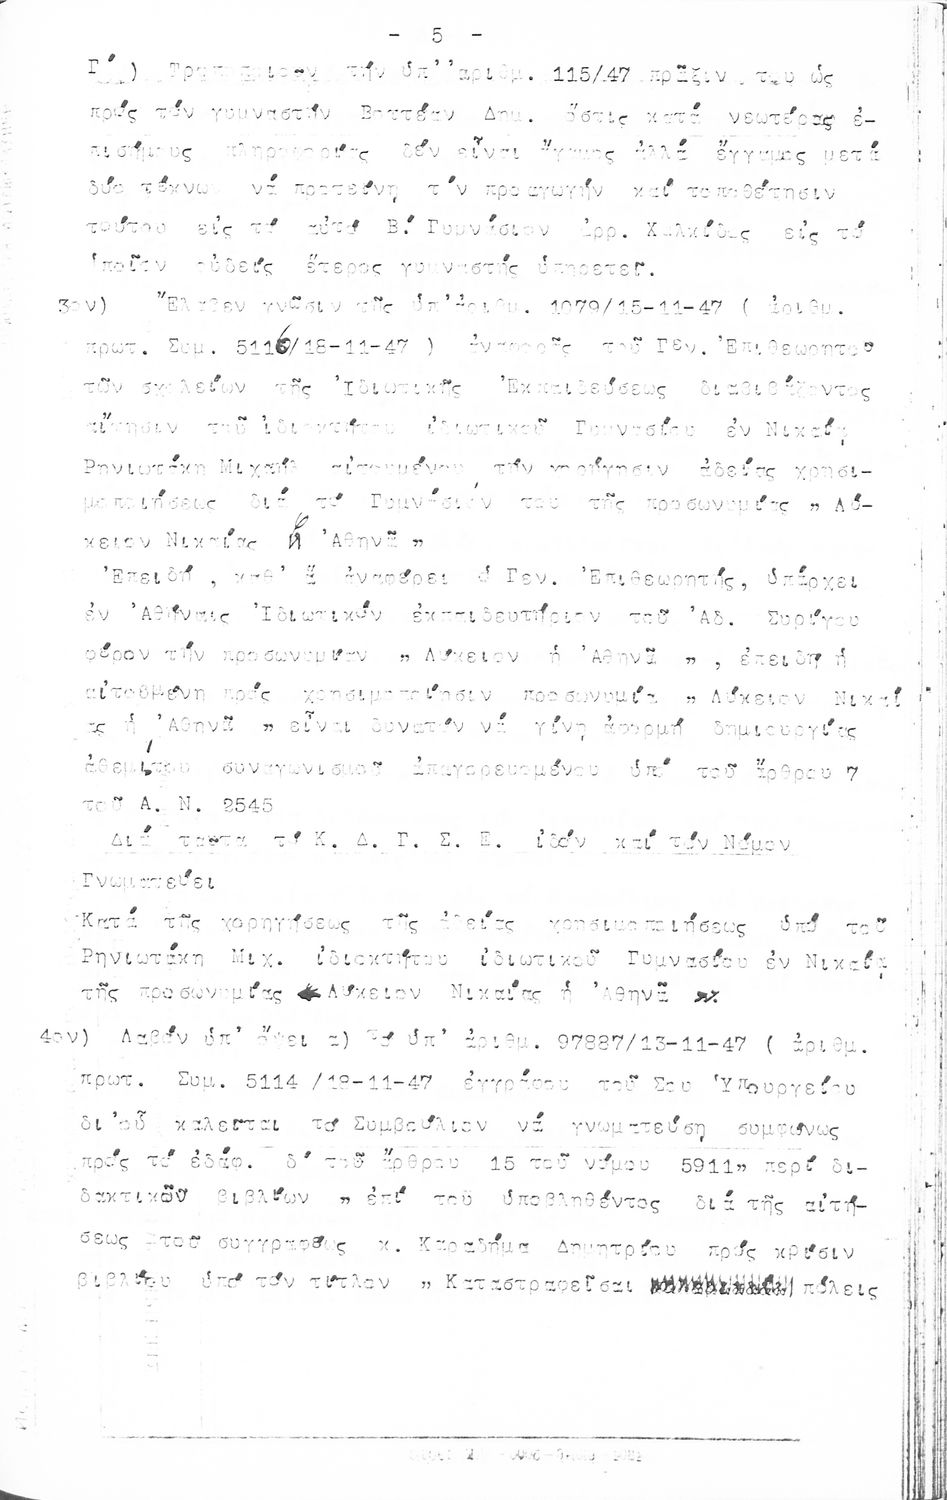 - 5 -
Γ΄ ) Τροποποιοῦν τήν ὑπ' ἀριθμ. 115/47 πρᾶξιν του ὡς
πρός τόν γυμναστήν Βαττέαν Δημ. ὅστις κατά νεωτέρας ἐ-
πισήμους πληροφορίας δέν εἶναι ἄγαμος ἀλλά ἔγγαμος μετά
δύο τέκνων νά προτείνη τήν προαγωγήν καί τοποθέτησιν
τούτου εἰς τό αὐτό Β΄ Γυμνάσιον ἀρρ. Χαλκίδος εἰς τό
ὁποῖον οὐδείς ἕτερος γυμναστής ὑπηρετεῖ.
3ον) Ἔλαβεν γνῶσιν τῆς ὑπ' ἀριθμ. 1079/15-11-47 ( ἀριθμ.
πρωτ. Συμ. 5116/18-11-47 ) ἀναφορᾶς τοῦ Γεν. Ἐπιθεωρητοῦ
τῶν σχολείων τῆς Ἰδιωτικῆς Ἐκπαιδεύσεως διαβιβάζοντος
αἴτησιν τοῦ ἰδιοκτήτου ἰδιωτικοῦ Γυμνασίου ἐν Νικαίᾳ
Ρηνιωτάκη Μιχαήλ αἰτουμένου τήν χορήγησιν ἀδείας χρησι-
μοποιήσεως διά τό Γυμνάσιόν του τῆς προσωνυμίας „ Λύ-
κειον Νικαίας ἡ Ἀθηνᾶ „
Ἐπειδή , καθ' ἅ ἀναφέρει ὁ Γεν. Ἐπιθεωρητής, ὑπάρχει
ἐν Ἀθήναις Ἰδιωτικόν ἐκπαιδευτήριον τοῦ Ἀδ. Συρίγου
φέρον τήν προσωνυμίαν „ Λύκειον ἡ Ἀθηνᾶ „ , ἐπειδή ἡ
αἰτουμένη πρός χρησιμοποίησιν προσωνυμία „ Λύκειον Νικαί
ας ἡ Ἀθηνᾶ „ εἶναι δυνατόν νά γίνη ἀφορμή δημιουργίας
ἀθεμίτου συναγωνισμοῦ ἀπαγορευομένου ὑπό τοῦ ἄρθρου 7
τοῦ Α. Ν. 2545
Διά ταῦτα τό Κ. Δ. Γ. Σ. Ε. ἰδόν καί τόν Νόμον
Γνωματεύει
Κατά τῆς χορηγήσεως τῆς ἀδείας χρησιμοποιήσεως ὑπό τοῦ
Ρηνιωτάκη Μιχ. ἰδιοκτήτου ἰδιωτικοῦ Γυμνασίου ἐν Νικαίᾳ
τῆς προσωνυμίας „ Λύκειον Νικαίας ἡ Ἀθηνᾶ „.
4ον) Λαβόν ὑπ' ὄψει α) Τό ὑπ' ἀριθμ. 97887/13-11-47 ( ἀριθμ.
πρωτ. Συμ. 5114 /18-11-47 ἐγγράφου τοῦ Σου Ὑπουργείου
δι' οὗ καλεῖται τό Συμβούλιον νά γνωματεύση συμφώνως
πρός τό ἐδάφ. δ΄ τοῦ ἄρθρου 15 τοῦ νόμου 5911„ περί δι-
δακτικῶν βιβλίων „ ἐπί τοῦ ὑποβληθέντος διά τῆς αἰτή-
σεως τοῦ συγγραφέως κ. Καραδήμα Δημητρίου πρός κρίσιν
βιβλίου ὑπό τόν τίτλον „ Καταστραφεῖσαι πόλεις